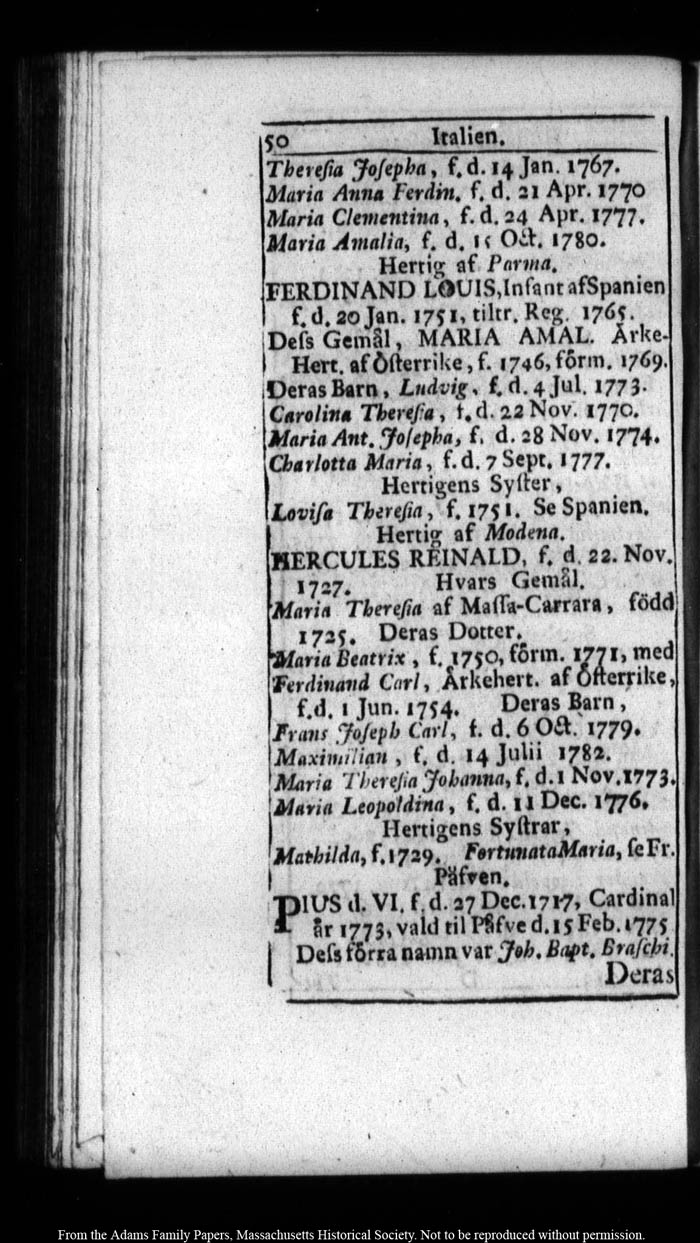 50 Italien.
Theresia Josepha, f. d. 14 Jan. 1767.
Maria Anna Ferdin. f. d. 21 Apr. 1770
Maria Clementina, f. d. 24 Apr. 1777.
Maria Amalia, f. d. 15 Oct. 1780.
Hertig af Parma.
FERDINAND LOUIS, Infant af Spanien
f. d. 20 Jan. 1751, tiltr. Reg. 1765.
Dess Gemål, MARIA AMAL. Ärke-
Hert. af Östterrike, f. 1746, förm. 1769.
Deras Barn, Ludvig, f. d. 4 Jul. 1773.
Carolina Theresia, f. d. 22 Nov. 1770.
Maria Ant. Josepha, f. d. 28 Nov. 1774.
Charlotta Maria, f. d. 7 Sept. 1777.
Hertigens Syster,
Lovisa Theresia, f. 1751. Se Spanien.
Hertig af Modena.
HERCULES REINALD, f. d. 22. Nov.
1727. Hvars Gemål.
Maria Theresia af Massa-Carrara, född
1725. Deras Dotter.
Maria Beatrix, f. 1750, förm. 1771, med
Ferdinand Carl, Ärkehert. af Österrike,
f. d. 1 Jun. 1754. Deras Barn,
Frans Joseph Carl, f. d. 6 Oct. 1779.
Maximilian, f. d. 14 Julii 1782.
Maria Theresia Johanna, f. d. 1 Nov. 1773.
Maria Leopoldina, f. d. 11 Dec. 1776.
Hertigens Systrar,
Mathilda, f. 1729. Fortunata Maria, se Fr.
Påfven.
PIUS d. VI. f. d. 27 Dec. 1717, Cardinal
år 1773, vald til Påfve d. 15 Feb. 1775
Dess förra namn var Joh. Bapt. Braschi.
Deras
From the Adams Family Papers, Massachusetts Historical Society. Not to be reproduced without permission.